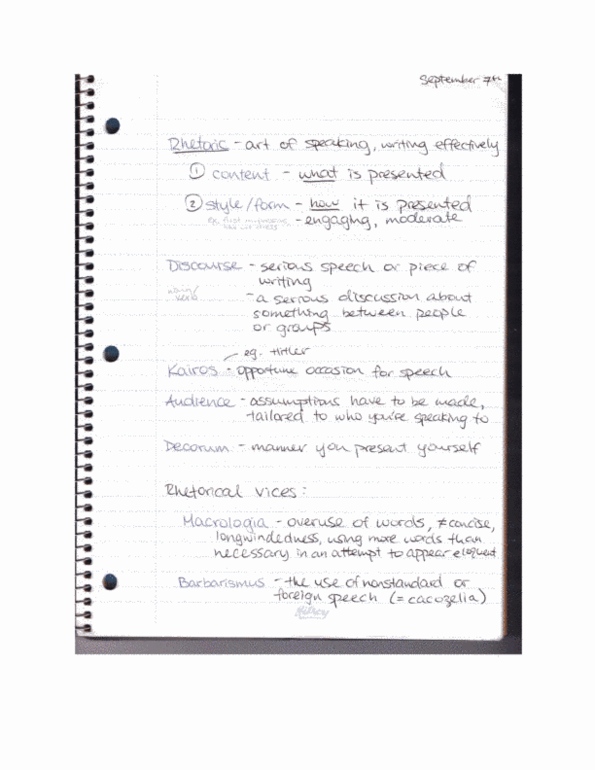 September 7th
Rhetoric - art of speaking, writing effectively
① content - what is presented
② style/form - how it is presented
- engaging, moderate
Discourse - serious speech or piece of
writing
- a serious discussion about
something between people
or groups
eg. Hitler
Kairos - opportune occasion for speech
Audience - assumptions have to be made,
tailored to who you're speaking to
Decorum - manner you present yourself
Rhetorical vices:
Macrologia - overuse of words, ≠ concise,
longwindedness, using more words than
necessary in an attempt to appear eloquent
Barbarismus - the use of nonstandard or
foreign speech (= cacozelia)